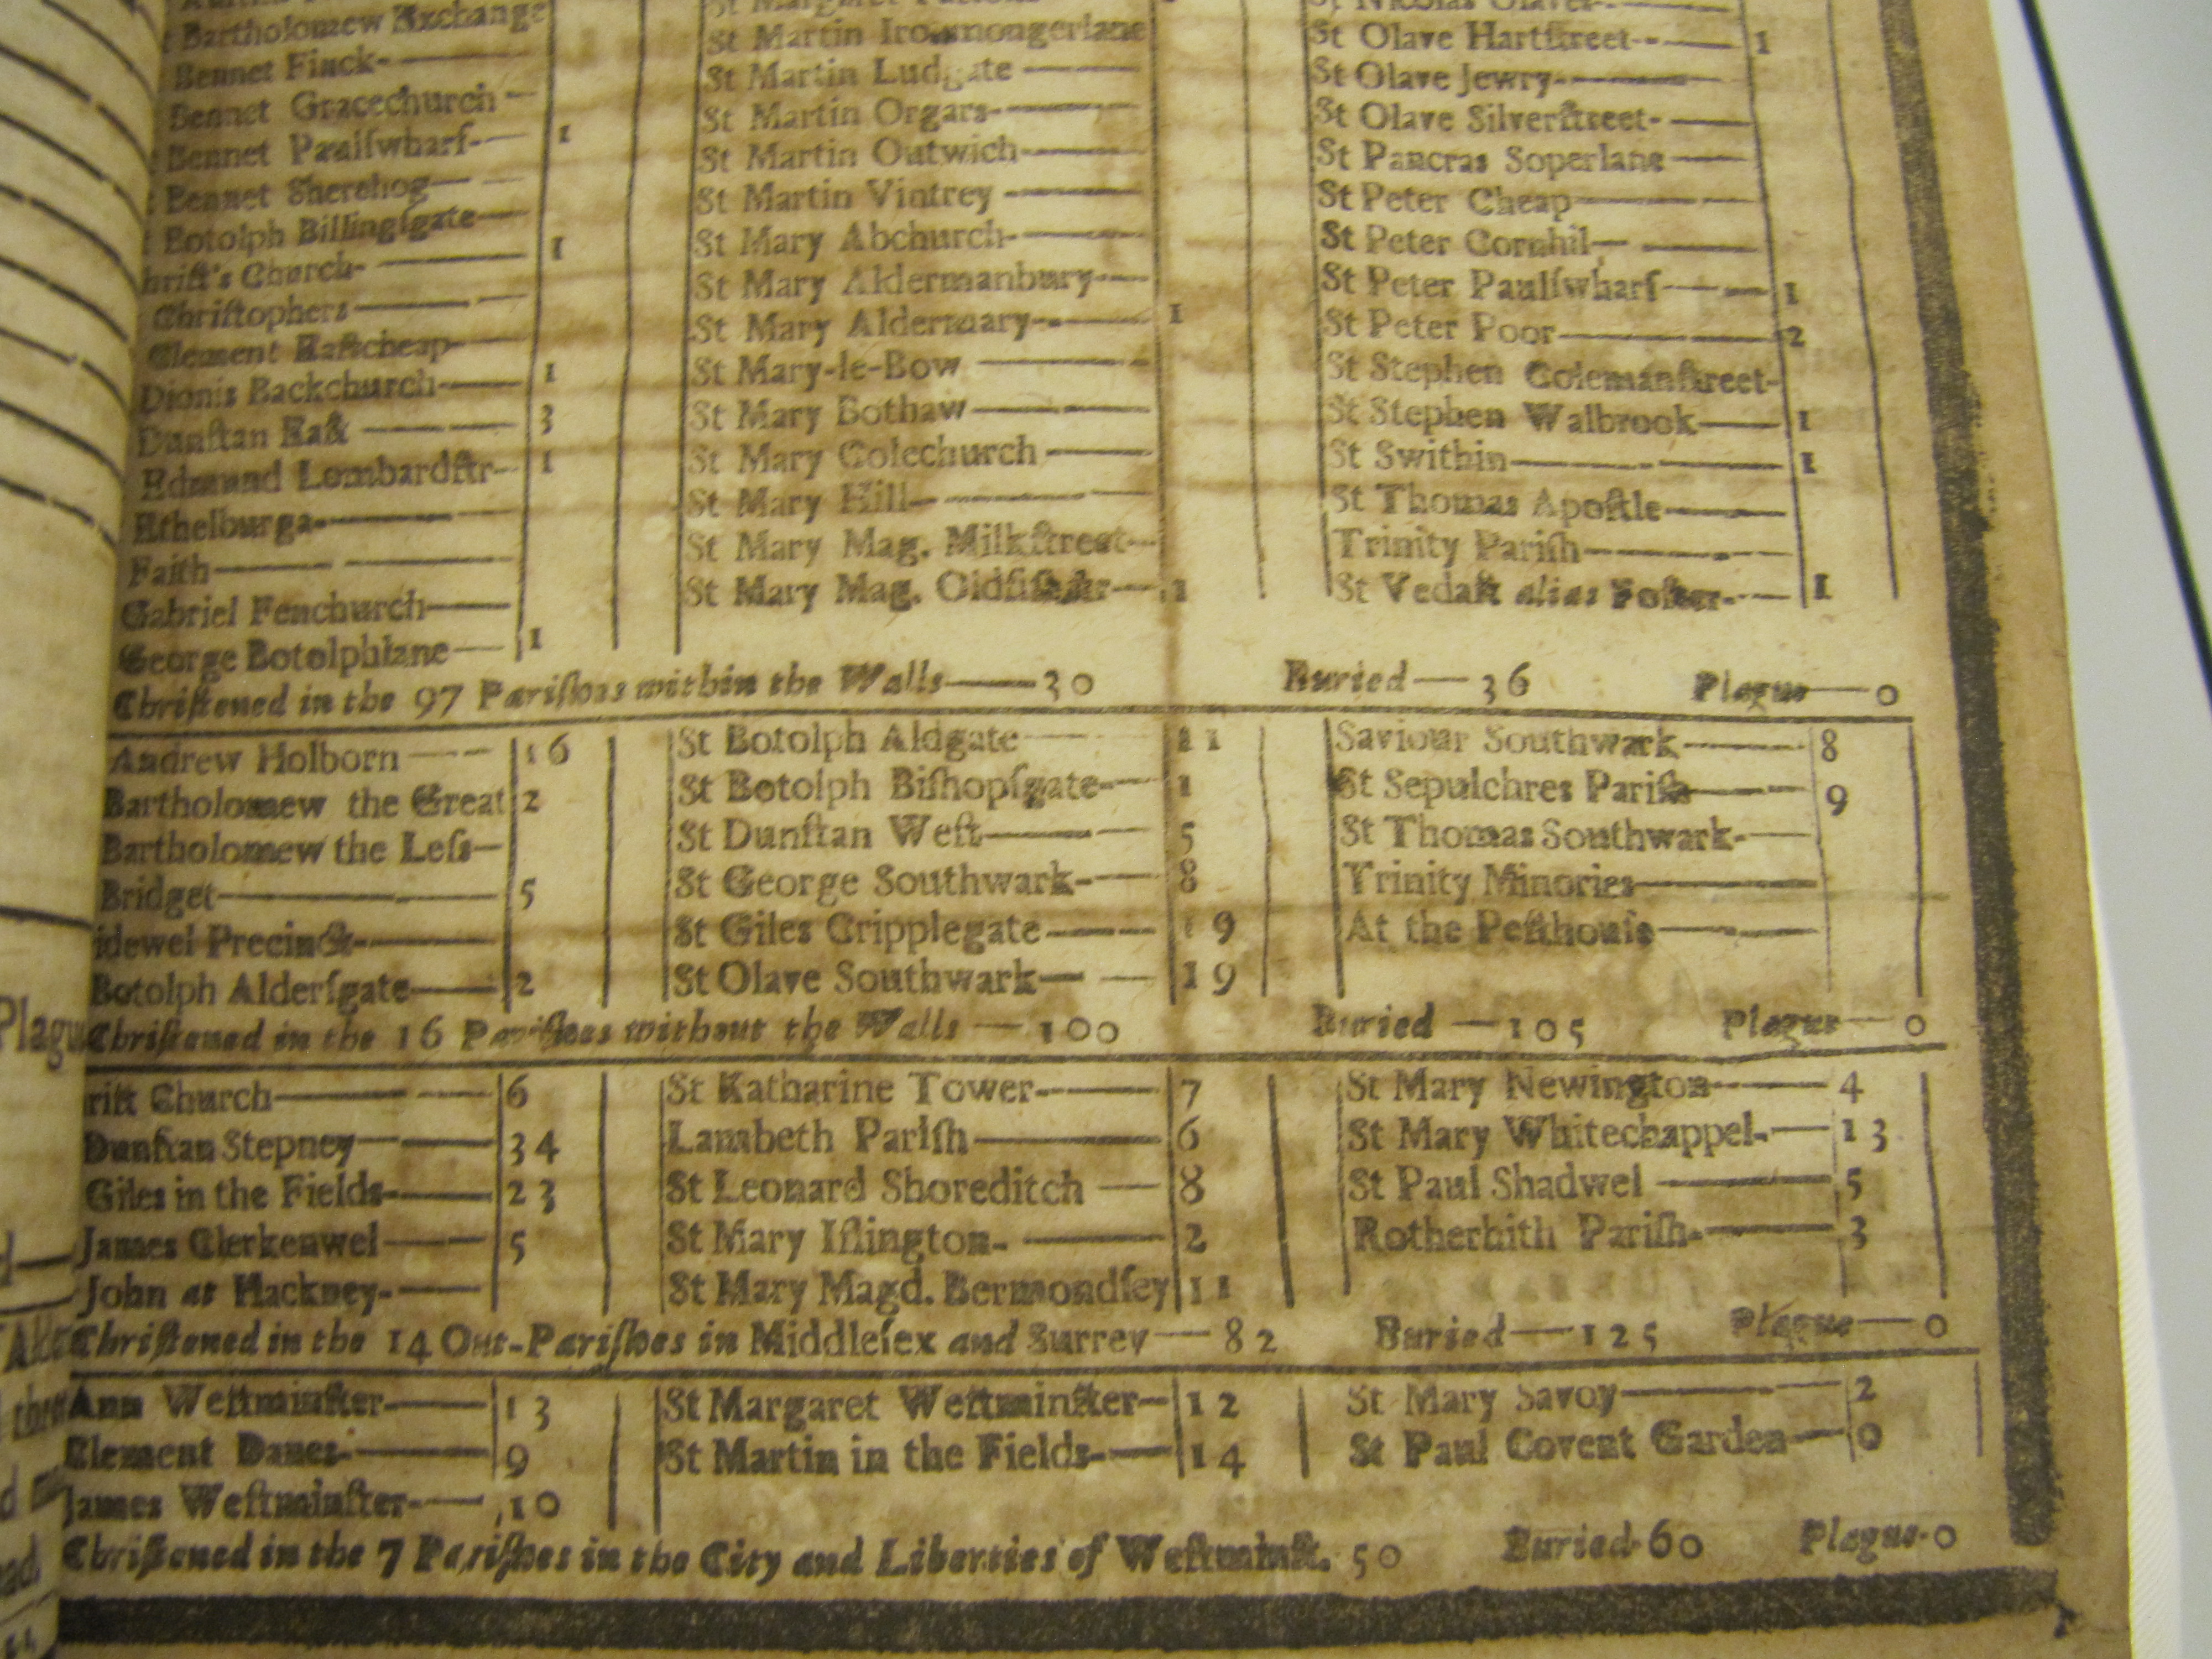 Bartholomew Exchange
Bennet Finck
Bennet Gracechurch
Bennet Paulſwharf 1
Bennet Sherehog
Botolph Billingſgate
hriſt's Church 1
Chriſtophers
Clement Eaſtcheap
Dionis Backchurch 1
Dunſtan Eaſt 3
Edmund Lombardſtr 1
Ethelburga
Faith
Gabriel Fenchurch
George Botolphlane 1
St Martin Ironmongerlane
St Martin Ludgate
St Martin Orgars
St Martin Outwich
St Martin Vintrey
St Mary Abchurch
St Mary Aldermanbury
St Mary Aldermary 1
St Mary-le-Bow
St Mary Bothaw
St Mary Colechurch
St Mary Hill
St Mary Mag. Milkſtreet
St Mary Mag. Oldfiſhſtr 1
St Olave Hartſtreet 1
St Olave Jewry
St Olave Silverſtreet
St Pancras Soperlane
St Peter Cheap
St Peter Cornhil
St Peter Paulſwharf 1
St Peter Poor 2
St Stephen Colemanſtreet
St Stephen Walbrook 1
St Swithin 1
St Thomas Apoſtle
Trinity Pariſh
St Vedaſt alias Foſter 1
Chriſtened in the 97 Pariſhes within the Walls — 30 Buried — 36 Plague — 0
Andrew Holborn 16
Bartholomew the Great 2
Bartholomew the Leſs
Bridget 5
idewel Precinct
Botolph Alderſgate 2
St Botolph Aldgate 11
St Botolph Biſhopſgate 1
St Dunſtan Weſt 5
St George Southwark 8
St Giles Cripplegate 19
St Olave Southwark 19
Saviour Southwark 8
St Sepulchres Pariſh 9
St Thomas Southwark
Trinity Minories
At the Peſthouſe
Chriſtened in the 16 Pariſhes without the Walls — 100 Buried — 105 Plague — 0
riſt Church 6
Dunſtan Stepney 34
Giles in the Fields 23
James Clerkenwel 5
John at Hackney
St Katharine Tower 7
Lambeth Pariſh 6
St Leonard Shoreditch 8
St Mary Iſlington 2
St Mary Magd. Bermondſey 11
St Mary Newington 4
St Mary Whitechappel 13
St Paul Shadwel 5
Rotherhith Pariſh 3
Chriſtened in the 14 Out-Pariſhes in Middleſex and Surrey — 82 Buried — 125 Plague — 0
Ann Weſtminſter 13
Clement Danes 9
James Weſtminſter 10
St Margaret Weſtminſter 12
St Martin in the Fields 14
St Mary Savoy 2
St Paul Covent Garden 0
Chriſtened in the 7 Pariſhes in the City and Liberties of Weſtminſt. 50 Buried 60 Plague 0
Plagu